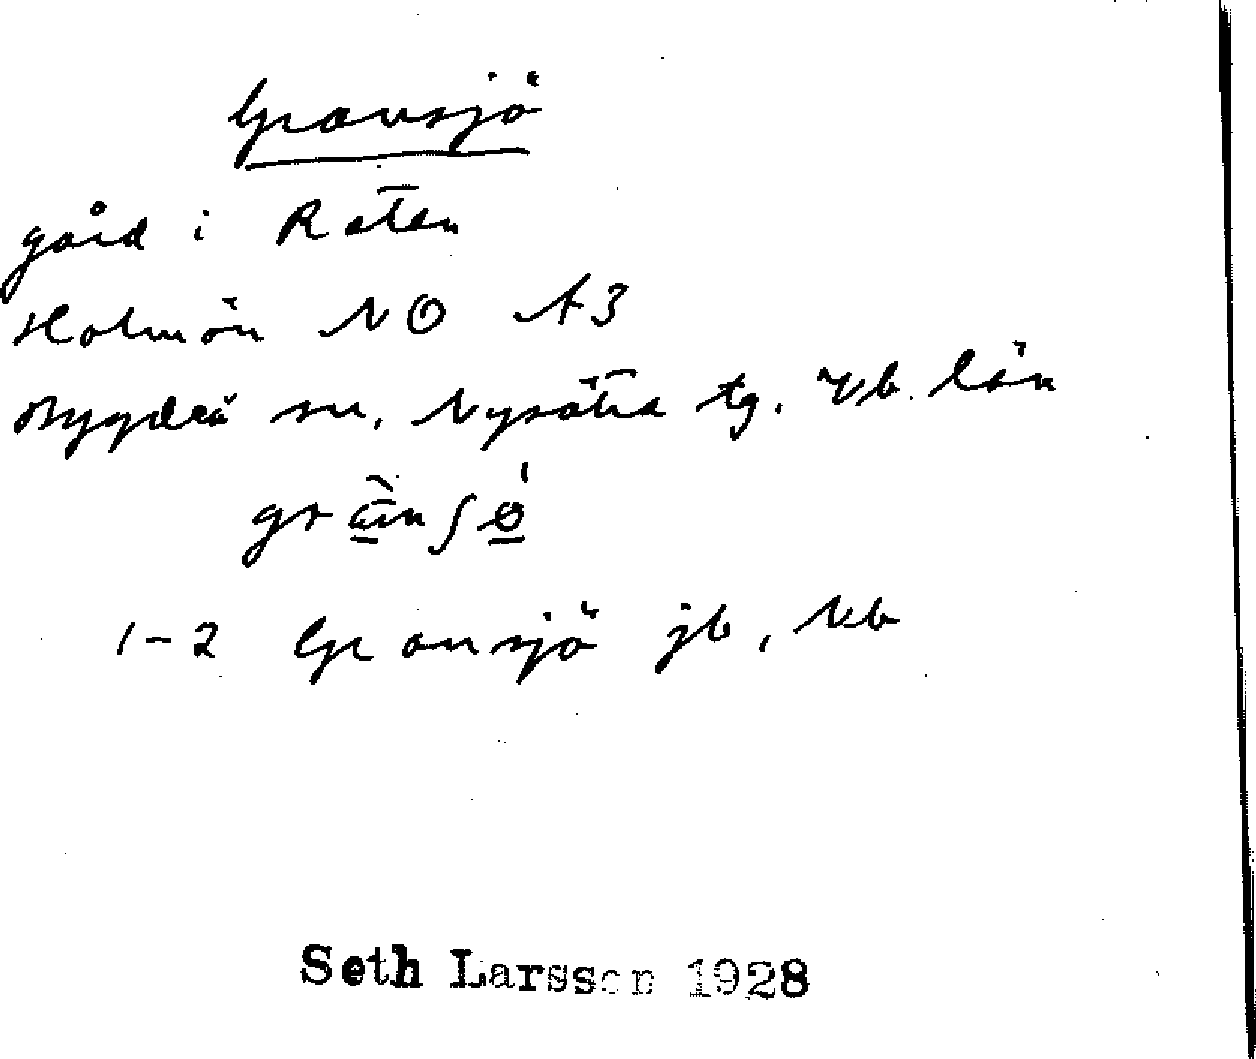 Gransjö
gård i Raten
Holmön NO A3
Bygdeå sn, Nysätra tg. Vb. län
1-2 Gransjö jb, kb
Seth Larsson 1928